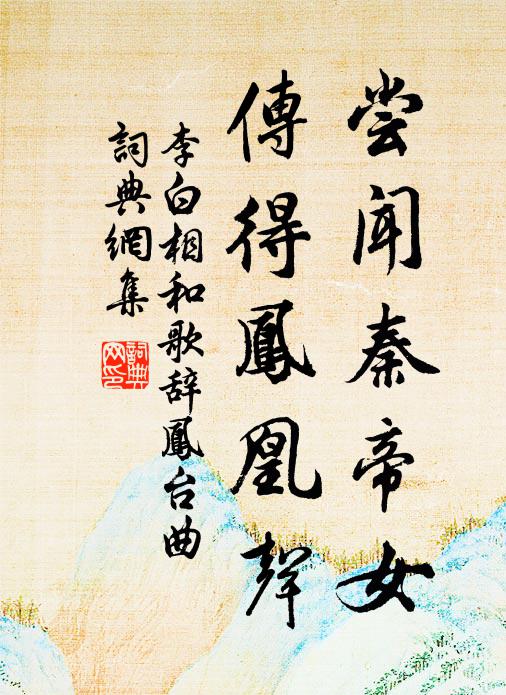 尝闻秦帝女
傳得鳳凰聲
李白相和歌辞鳳台曲
詞典網集
詞典
网印